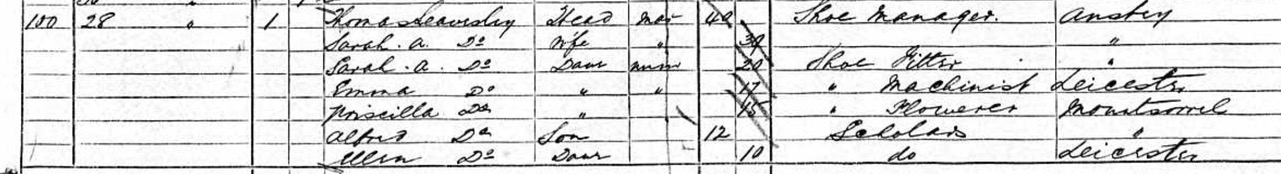 100 28 " 1 Thomas Leavesley Head Mar 40 Shoe Manager. Anstey
Sarah. A. Do Wife " 39 "
Sarah. A. Do Daur unm 20 Shoe Fitter "
Emma Do " " 17 " Machinist Leicester
Priscilla Do " 15 " Flowerer Mountsorrel
Alfred Do Son 12 Scholar "
Ellen Do Daur 10 do Leicester